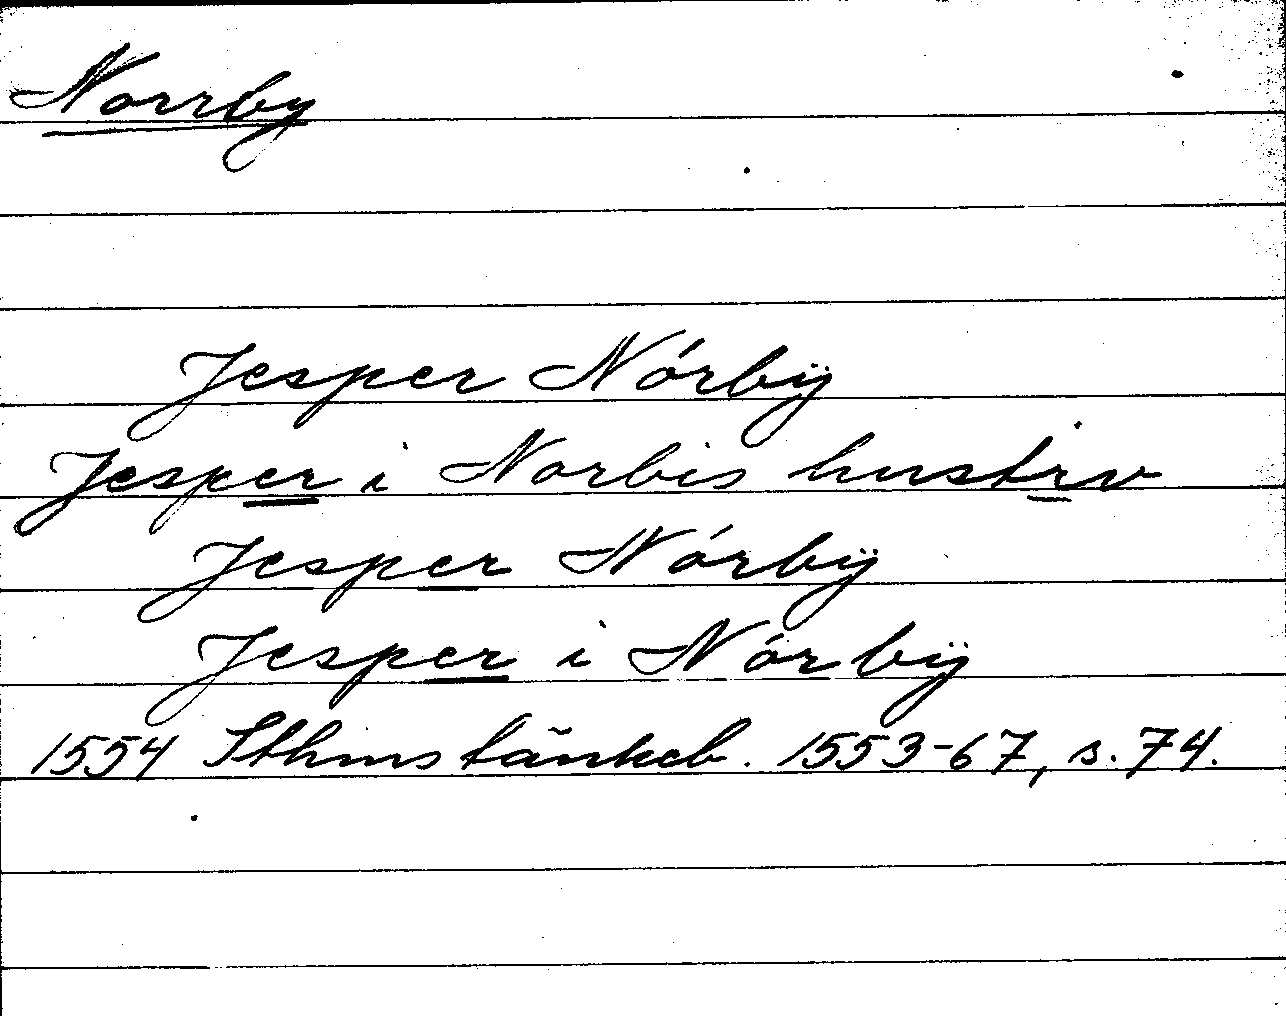 Norrby
Jesper Nórbÿ
Jesper i Norbis hustrv
Jesper Nórbÿ
Jesper i Nórbÿ
1554 Sthms tänkeb. 1553-67, s. 74.